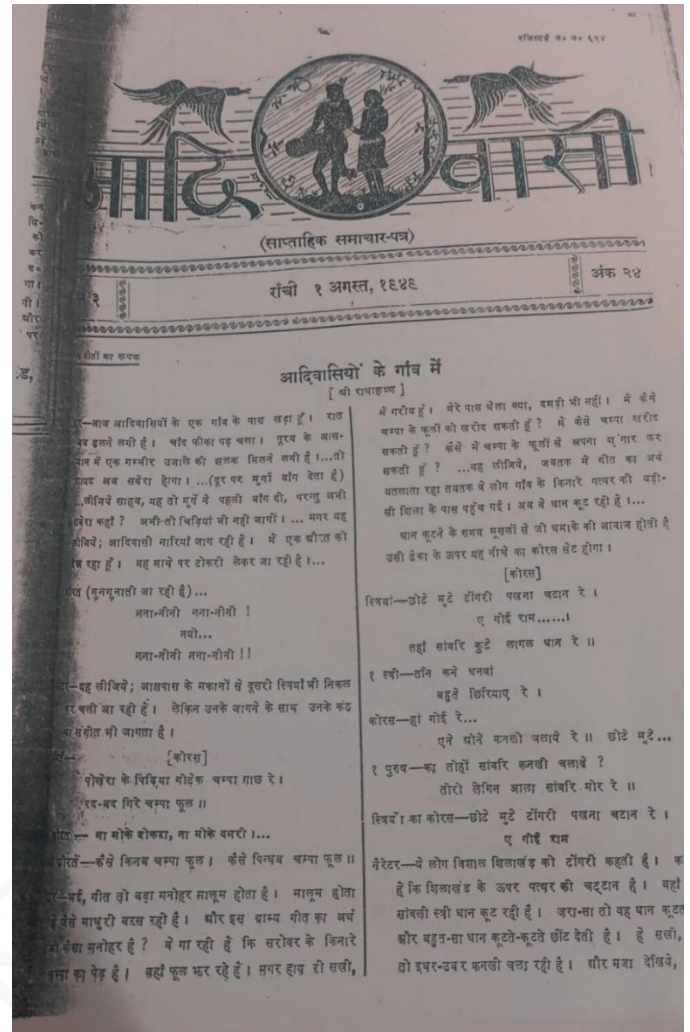 रजिस्टर्ड नं० प० ६२४
आदि वासी
(साप्ताहिक समाचार-पत्र)
३
रांची १ अगस्त, १९४९
अंक २४
गीतों का रूपक
आदिवासियों के गांव में
[ श्री राधाकृष्ण ]
—आज आदिवासियों के एक गांव के पास खड़ा हूँ। रात
अब ढलने लगी है। चांद फीका पड़ चला। पूरब के आस-
मान में एक गम्भीर उजाले की झलक मिलने लगी है।...तो
शायद अब सवेरा होगा। ...(दूर पर मुर्गा बाँग देता है)
...लीजिये साहब, यह तो मुर्गे ने पहली बाँग दी, परन्तु अभी
सवेरा कहाँ ? अभी-तो चिड़ियां भी नहीं जागीं। ... मगर यह
लीजिये; आदिवासी नारियां जाग रही हैं। मैं एक औरत को
देख रहा हूँ। वह माथे पर टोकरी लेकर जा रही है।...
(गुनगुनाती जा रही है)...
नना-नीनी नना-नीनी !
नयो...
नना-नीनी नना-नीनी !!
—यह लीजिये; आसपास के मकानों से दूसरी स्त्रियाँ भी निकल
कर चली आ रही हैं। लेकिन उनके जागने के साथ उनके कंठ
का संगीत भी जागता है।
[कोरस]
पोखेरा के पिंडिया गोटेक चम्पा गाछ रे।
रद-बद गिरे चम्पा फूल॥
— ना मोके ढोकड़ा, ना मोके दमरी।...
—कैसे किनब चम्पा फूल। कैसे पिन्धब चम्पा फूल॥
—भई, गीत तो बड़ा मनोहर मालूम होता है। मालूम होता
है जैसे माधुरी बरस रही है। और इस ग्राम्य गीत का अर्थ
भी कैसा मनोहर है ? वे गा रही हैं कि सरोवर के किनारे
चम्पा का पेड़ है। वहाँ फूल झर रहे हैं। मगर हाय री सखी,
मैं गरीब हूँ। मेरे पास धेला क्या, दमड़ी भी नहीं। मैं कैसे
चम्पा के फूलों को खरीद सकती हूँ ? मैं कैसे चम्पा खरीद
सकती हूँ ? कैसे मैं चम्पा के फूलों से अपना सृंगार कर
सकती हूँ ? ...यह लीजिये, जबतक मैं गीत का अर्थ
बतलाता रहा तबतक वे लोग गाँव के किनारे पत्थर की बड़ी-
सी शिला के पास पहुँच गईं। अब वे धान कूट रही हैं।...
धान कूटने के समय मूसलों से जो धमाके की आवाज होती है
उसी ठेका के ऊपर यह नीचे का कोरस सेट होगा।
[कोरस]
स्त्रियां—छोटे मुटे टोंगरी पखना चटान रे।
ए गोई राम......।
तहाँ सांवरि कुटे लागल धान रे॥
१ स्त्री—तनि कने धनवां
बहुते छिरियाए रे।
कोरस—हां गोई रे...
एने ओने कनखी चलावे रे॥ छोटे मुटे...
१ पुरुष—का तोहों सांवरि कनखी चलाबे ?
तोरो लेगिन आला सांवरि मोर रे॥
स्त्रियों का कोरस—छोटे मुटे टोंगरी पखना चटान रे।
ए गोई राम
नैरेटर—ये लोग विशाल शिलाखंड को टोंगरी कहती हैं।
हैं कि शिलाखंड के ऊपर पत्थर की चट्टान है। वहाँ
सांवली स्त्री धान कूट रही है। जरा-सा तो वह धान कूटत
और बहुत-सा धान कूटते-कूटते छींट देती है। हे सखी,
तो इधर-उधर कनखी चला रही है। और मजा देखिये,